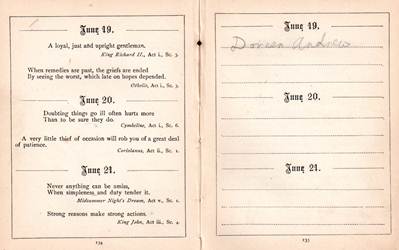 June 19.
A loyal, just and upright gentleman.
King Richard II., Act i., Sc. 3.
When remedies are past, the griefs are ended
By seeing the worst, which late on hopes depended.
Othello, Act i., Sc. 3.
June 20.
Doubting things go ill often hurts more
Than to be sure they do.
Cymbeline, Act i., Sc. 6.
A very little thief of occasion will rob you of a great deal
of patience.
Coriolanus, Act ii., Sc. 1.
June 21.
Never anything can be amiss,
When simpleness and duty tender it.
Midsummer Night's Dream, Act v., Sc. 1.
Strong reasons make strong actions.
King John, Act iii., Sc. 4.
134
June 19.
Doreen Andrew
June 20.
June 21.
135